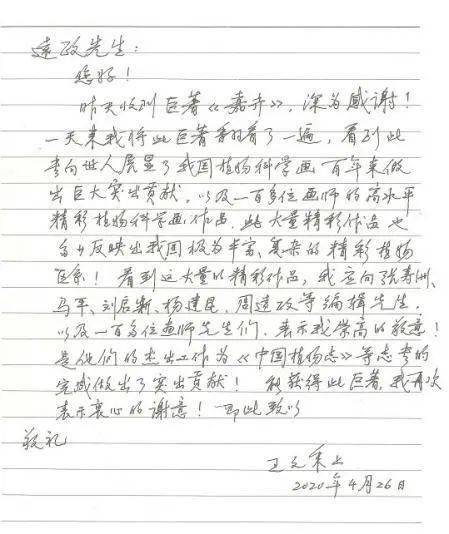 远政先生：
您好！
昨天收到巨著《嘉卉》，深为感谢！
一天来我将此巨著看了一遍，看到此
书向世人展显了我国植物科学画百年来做
出巨大突出贡献，以及一百多位画师的高水平
精彩植物科学画作品，此大量精彩作品也
反映出我国极为丰富、复杂的精彩植物
区系！看到这大量的精彩作品，我应向张寿洲、
马平、刘启新、杨建昆、周远政等编辑先生，
以及一百多位画师先生们，表示我崇高的敬意！
是他们的杰出工作为《中国植物志》等志书的
完成做出了突出贡献！我获得此巨著，我再次
表示衷心的谢意！即此致以
敬礼
王文采上
2020年4月26日